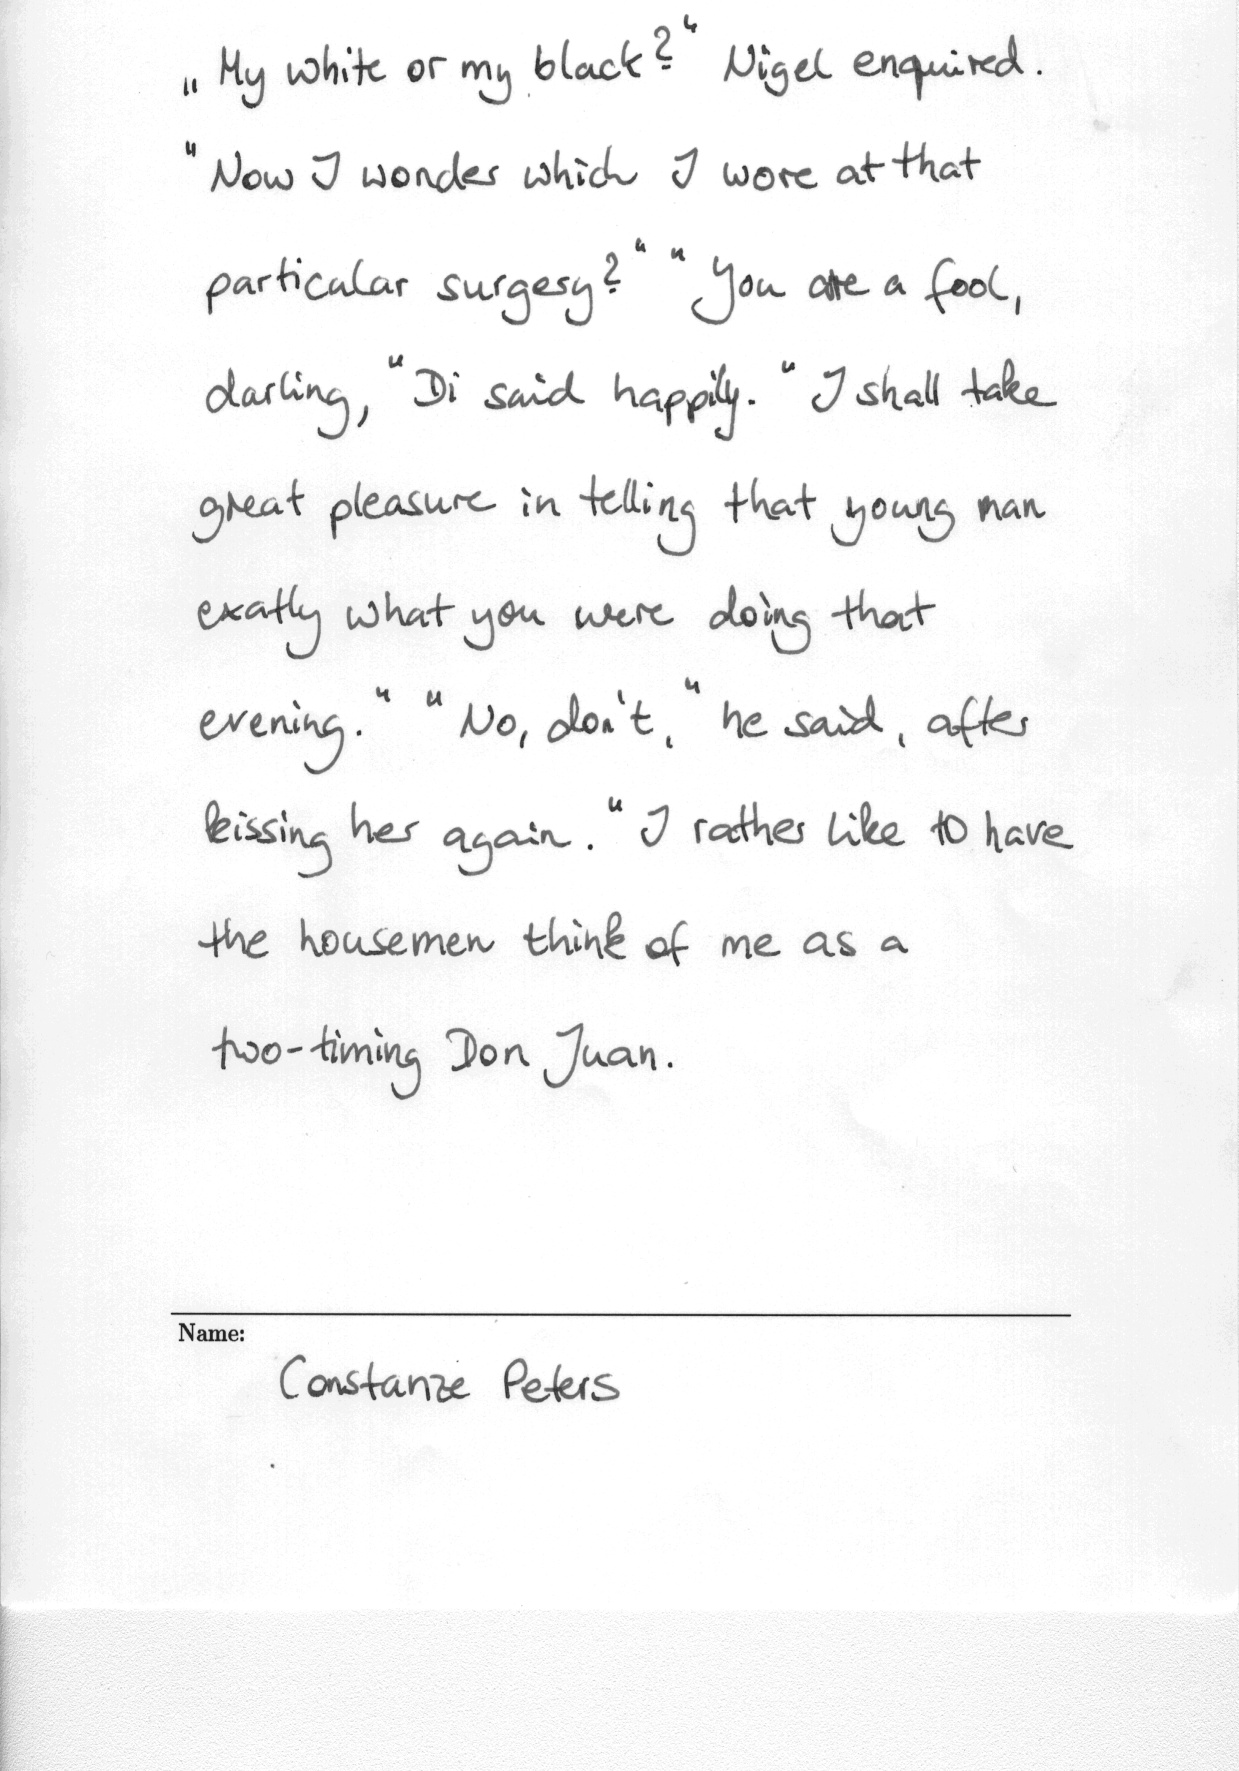 „My white or my black?“ Nigel enquired.
"Now I wonder which I wore at that
particular surgery?" "You are a fool,
darling," Di said happily. "I shall take
great pleasure in telling that young man
exatly what you were doing that
evening." "No, don't," he said, after
kissing her again. "I rather like to have
the housemen think of me as a
two-timing Don Juan.
Name:
Constanze Peters